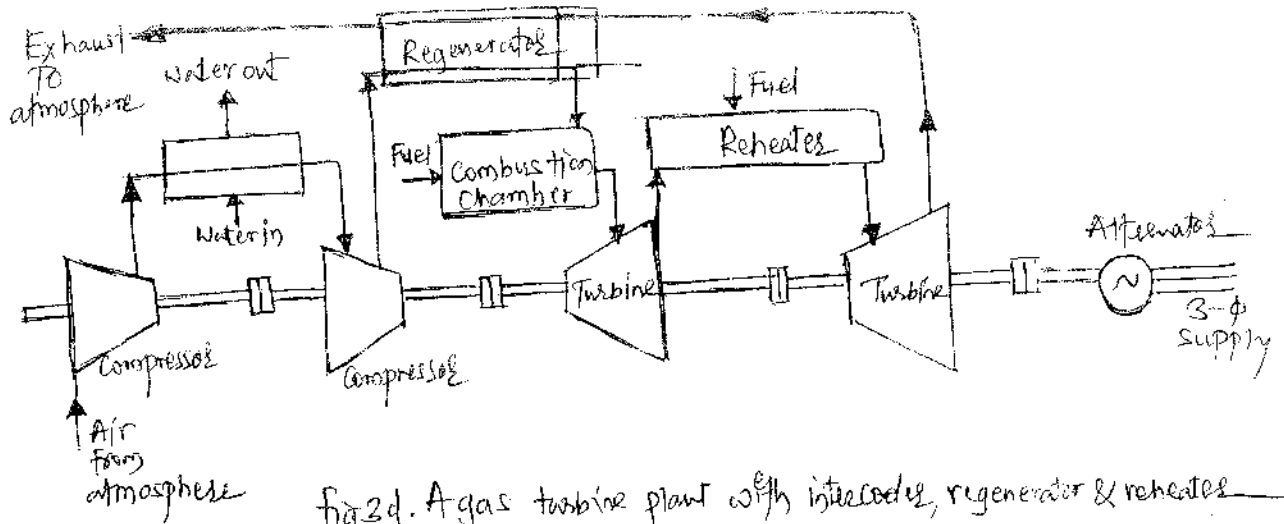 Exhaust
TO
atmosphere
Water out
Regenerator
Fuel
Reheater
Fuel
Combustion
Chamber
Water in
Turbine
Turbine
Alternator
~
3-ϕ
supply
Compressor
Compressor
Air
from
atmosphere
fig 3d. A gas turbine plant with intercooler, regenerator & reheater